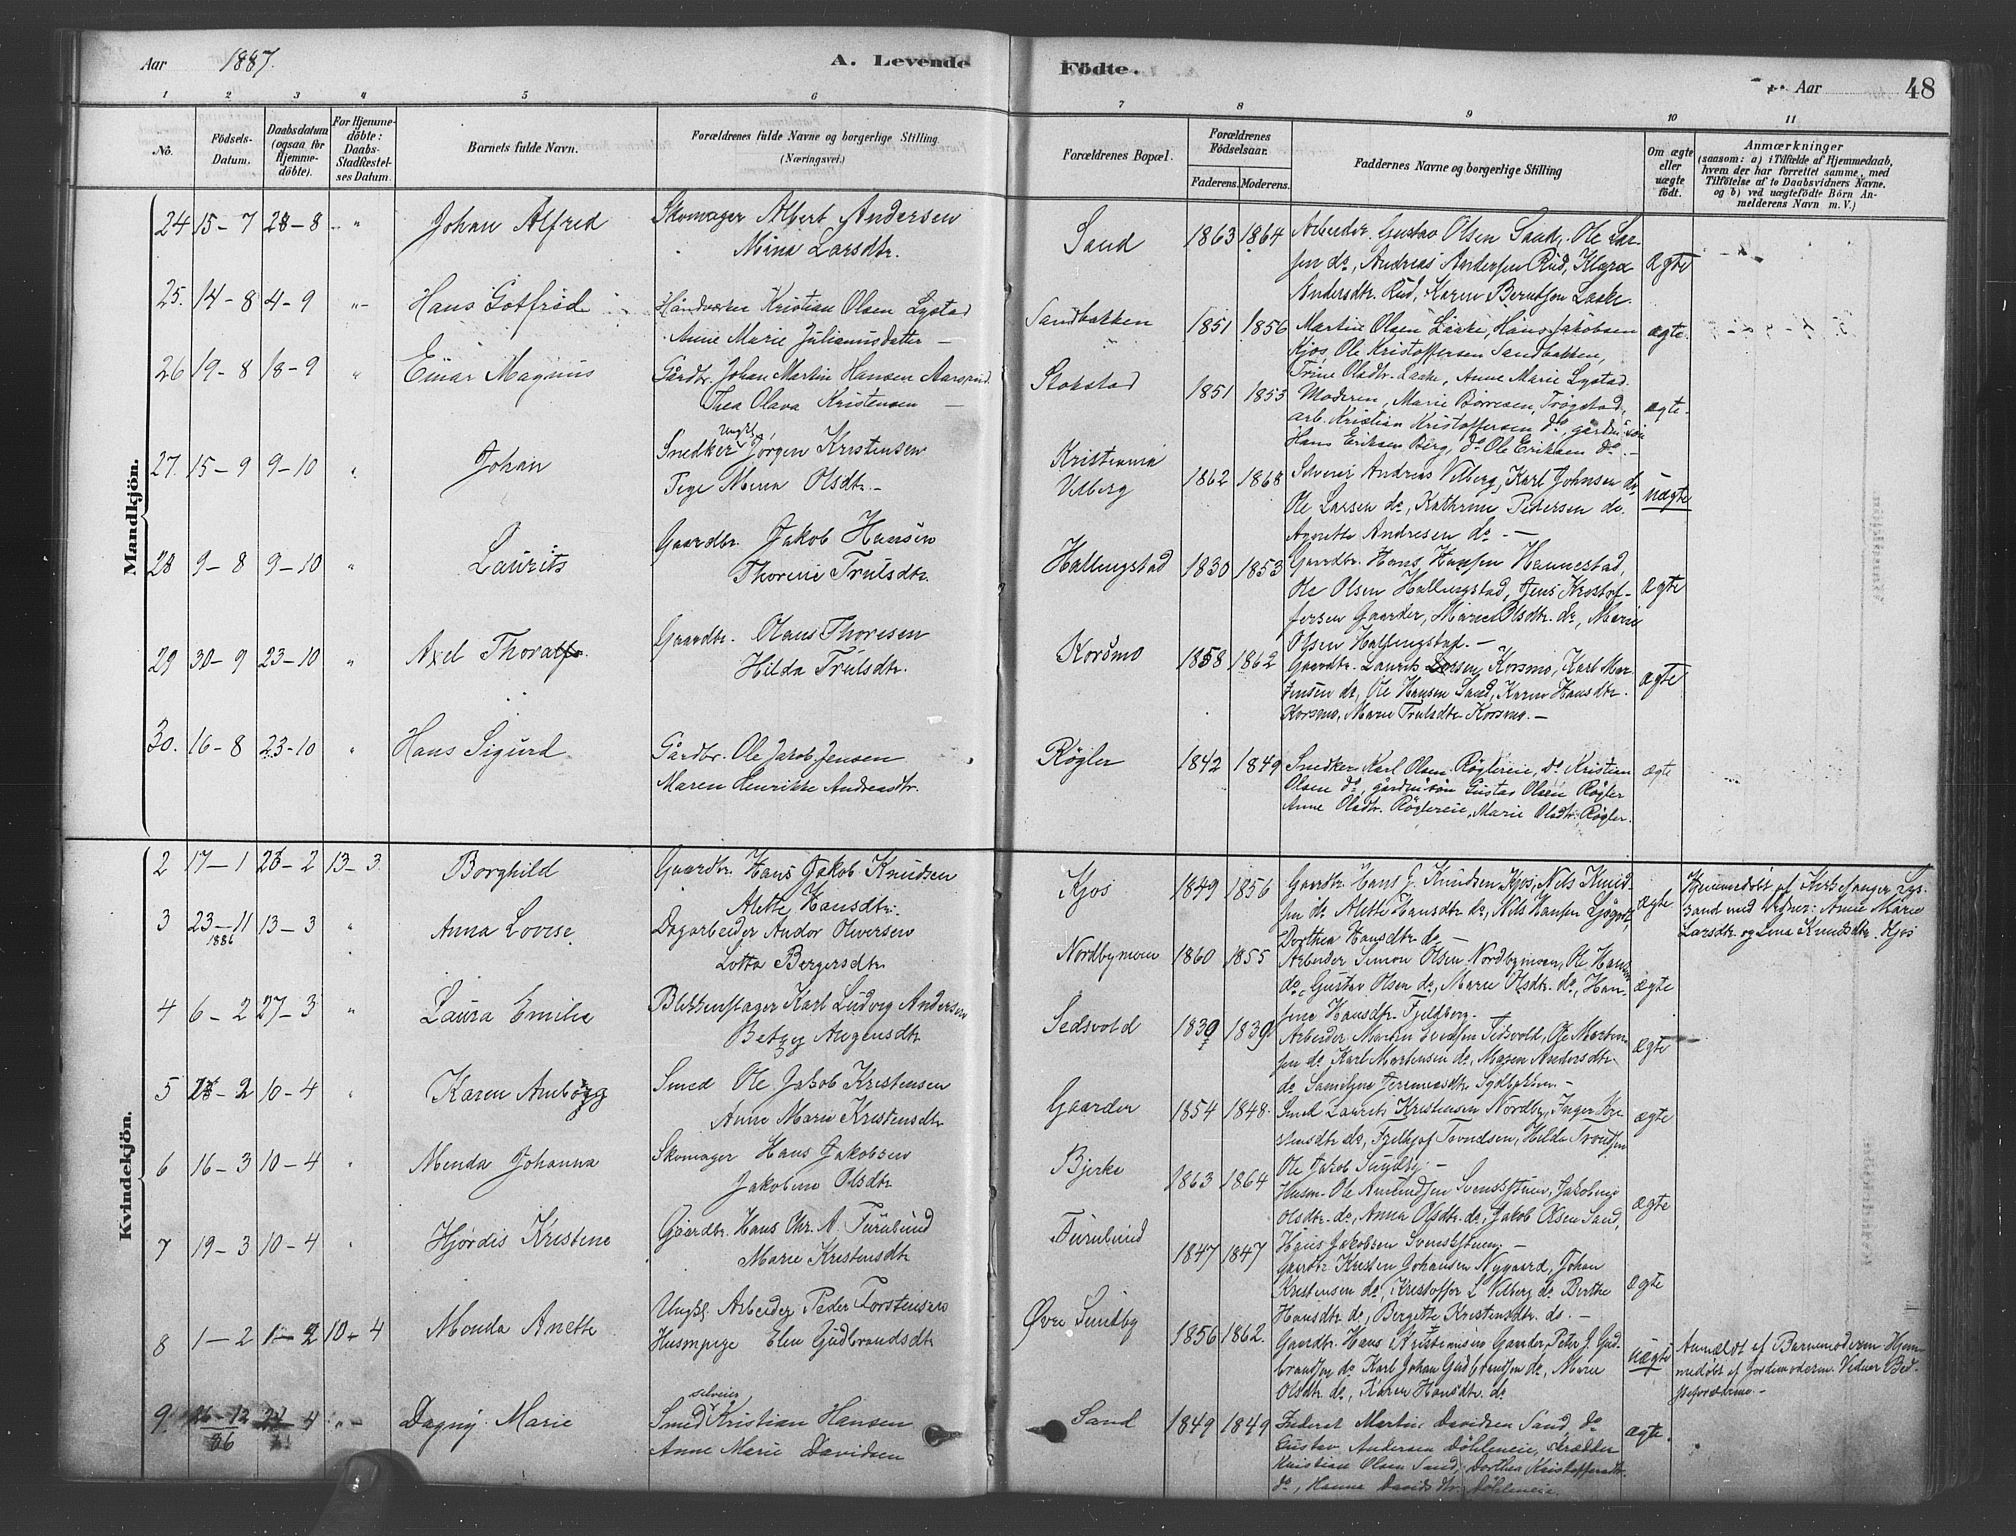 Aar 1887. A. Levende Födte. Aar 48
1 2 3 4 5 6 7 8 9 10 11
No. Födsels-Datum. Daabsdatum (ogsaa for Hjemmedöbte). For Hjemmedöbte: Daabs-Stadfæstelses Datum. Barnets fulde Navn. Forældrenes fulde Navne og borgerlige Stilling (Næringsvei.) Forældrenes Bopæl. Forældrenes Födselsaar. Faderens. Moderens. Faddernes Navne og borgerlige Stilling Om ægte eller uægte födt. Anmærkninger (saasom: a) i Tilfælde af Hjemmedaab, hvem der har forrettet samme, med Tilföielse af to Daabsvidners Navne, og b) ved uægtefödte Börn Anmelderens Navn m. V.)
Mandkjön.
24 15-7 28-8 " Johan Alfred Skomager Albert Andersen
Mina Larsdtr. Sand 1863 1864 Arbeider Gustav Olsen Sand, Ole Lar-
sen do, Andreas Andersen Rud, Klara
Andersdtr. Rud, Karen Berntsen Laake. ægte
25. 14-8 4-9 " Hans Gotfred Kristian Olsen Lystad
Anne Marie Julianusdatter Sandbakken 1851 1856 Martin Olsen Laake, Hans Jakobsen
Kjos, Ole Kristoffersen Sandbakken,
Trine Olsdtr. Laake, Anne Marie Lystad. ægte.
26 19-8 18-9 " Einar Magnus Gårdbr. Johan Martin Hansen
Thea Olava Kristensen Stokstad 1851 1853 Moderen, Marie Borresen, Trøgstad,
arb. Kristian Kristoffersen do, gårdm.søn
Hans Eriksen Berg, do Ole Eriksen do. ægte.
27. 15-9 9-10 " Johan Snedker Ungk. Jörgen Kristensen
Pige Maren Olsdtr. Kristiania
Vilberg 1862 1868 Selveier Andreas Vilberg, Karl Johnsen do
Ole Larsen do, Kathrine Petersen do
Agnethe Andresen do. uægte
28 9-8 9-10 " Laurits Gaardbr. Jakob Hansen
Thorine Trulsdtr. Hallingstad 1830 1853 Gaardbr. Hans Hansen Hannestad,
Ole Olsen Hallingstad, Jens Kristof-
fersen Gaarder, Maren Olsdtr. do, Marie
Olsen Hallingstad. ægte
29 30-9 23-10 " Axel Thoralf Gaardbr. Olaus Thoresen
Hilda Trulsdtr. Korsmo 1858 1862 Gaardbr. Laurits Larsen Korsmo, Karl Mar-
tensen do, Ole Hansen Sand, Karen Hansdtr.
Korsmo, Marie Trulsdtr Korsmo. ægte
30. 16-8 23-10 " Hans Sigurd Gårdbr. Ole Jacob Jensen
Maren Henrikke Andreasdtr. Røgler 1842 1849 Snedker Karl Olsen Røglereie, do Kristian
Olsen do, gårdm.søn Gustav Olsen Røgler
Anne Olsdtr. Røglereie, Marie Olsdtr. Røgler. ægte
Kvindekjön.
2 17-1 26-2 13-3 Borghild Gaardbr. Hans Jakob Knudsen
Alette Hansdtr. Kjos 1849 1856 Gaardbr. Hans J. Knudsen Kjos, Nils Knud-
sen do Alette Hansdtr do, Nils Hansen
Dorthea Hansdtr do ægte Hjemmedøbt af Kirkesanger Lys-
sand med Vidner: Anne Marie
Larsdtr og Lina Knudsdtr. Kjos
3 23-11 1886 13-3 " Anna Lovise Dagarbeider Andor Oliversen
Lotta Bergersdtr Nordbymoen 1860 1855 Arbeider Simon Olsen Nordbymoen, Ole Hansen
do, Gustav Olsen do, Marie Olsdtr. do, Han-
sine Hansdtr. Fjeldberg. ægte
4 6-2 27-3 " Laura Emilie Blikkenslager Karl Ludvig Andersen
Betzy Sedsvold 1839 1839 Arbeider Martin Sedsvold, Ole Marten-
sen do, Karl Martensen do, Maren Andersdtr
do ægte
5 28-2 10-4 " Karen Amborg Smed Ole Jakob Kristensen
Anne Marie Kristensdtr Gaarder 1854 1848 Smed Laurits Kristensen Nordby, Inger Kri-
stensdtr do, Fridthjof Trondsen, Hilda Trondsen
Ole Jakob Sundby. ægte
6 16-3 10-4 " Menda Johanna Skomager Hans Jakobsen
Jakobine Olsdtr Bjerke 1863 1864 Husm. Ole Amundsen Jakobine
Olsdtr. do, Anna Olsdtr. do, Jakob Olsen Sand,
Hans Jakobsen ægte
7 19-3 10-4 " Hjørdis Kristine Gaardbr. Hans Chr. A. Furulund
Marie Kristensdtr Furulund 1847 1847 Gaardbr Kristen Johansen Nygaard, Johan
Kristensen do, Kristoffer L Vilberg do Berthe
Hansdtr do, Bergitte Kristensdtr do. ægte
8 1-2 1-2 10-4 Monda Anette Ungk. Arbeider Peder Torstensen
Huspige Elen Gudbrandsdtr Øvre Sundby 1856 1862. Gaardbr. Hans Kristiansen Gaarder, Peter J. Gud-
brandsen do Karl Johan Gudbrandsen do, Marie
Olsdtr. do, Karen Hansdtr. do uægte Anmeldt af Barnemoderen. Hjem-
medøbt af Jordemoderen. Vidner Bed-
steforældrene.
9. 26-12 86 24-4 " Dagny Marie Smed selveier Kristian Hansen
Anne Marie Davidsen Sand 1849 1849 Føderåd Martin Davidsen Sand, do
Gustav Andersen Döhleneie, skrædder
Kristian Olsen Sand, Dorthea Kristoffersdtr.
do, Hanna Davidsdtr. Döhleneie. ægte.